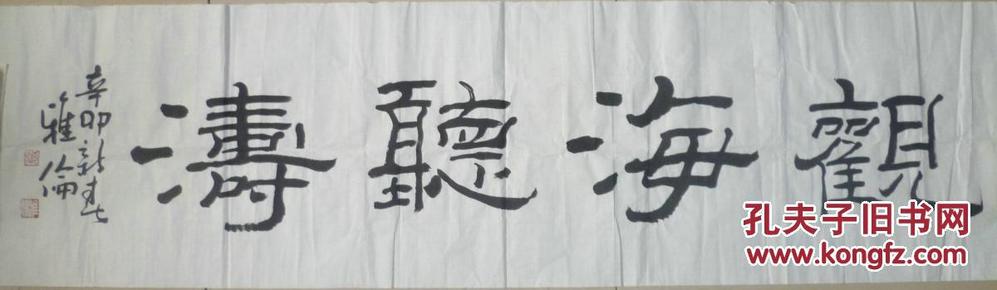 觀海聽濤
辛卯新春
雅倫
孔夫子旧书网
www.kongfz.com